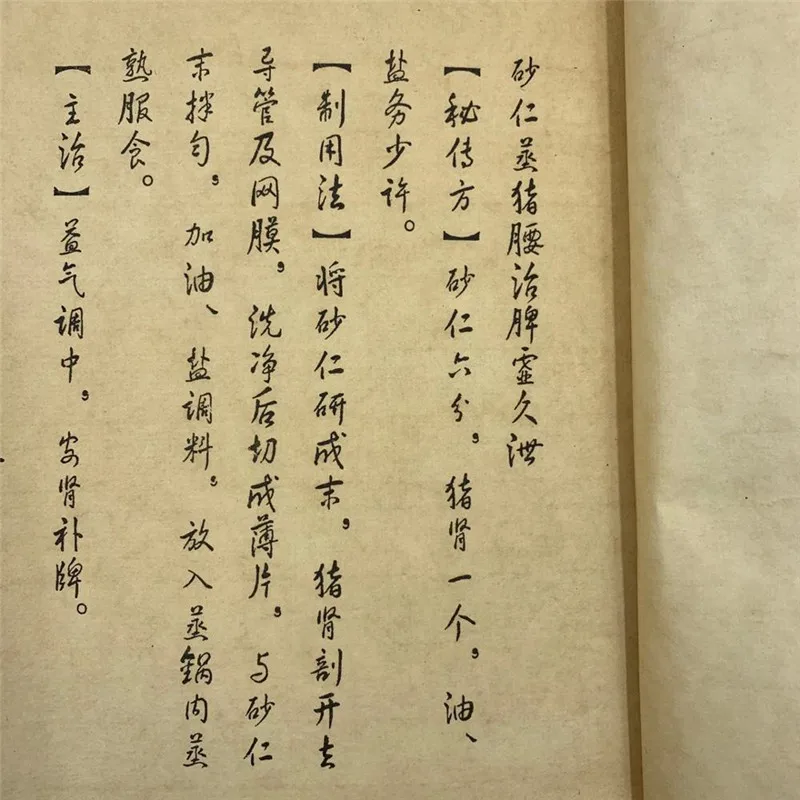 砂仁蒸猪腰治脾虚久泄
【秘传方】砂仁六分，猪肾一个，油、
盐各少许。
【制用法】将砂仁研成末，猪肾剖开去
导管及网膜，洗净后切成薄片，与砂仁
末拌匀，加油、盐调料，放入蒸锅内蒸
熟服食。
【主治】益气调中，安肾补脾。